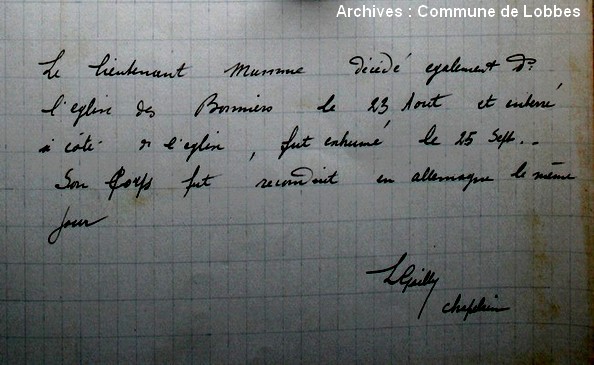 Archives : Commune de Lobbes
Le lieutenant décédé egalement Ds
l'eglise des Bonniers le 23 Aout et enterré
à côté de l'eglise, fut exhumé le 25 Sept..
Son Corps fut reconduit en allemagne le même
jour
chapelain